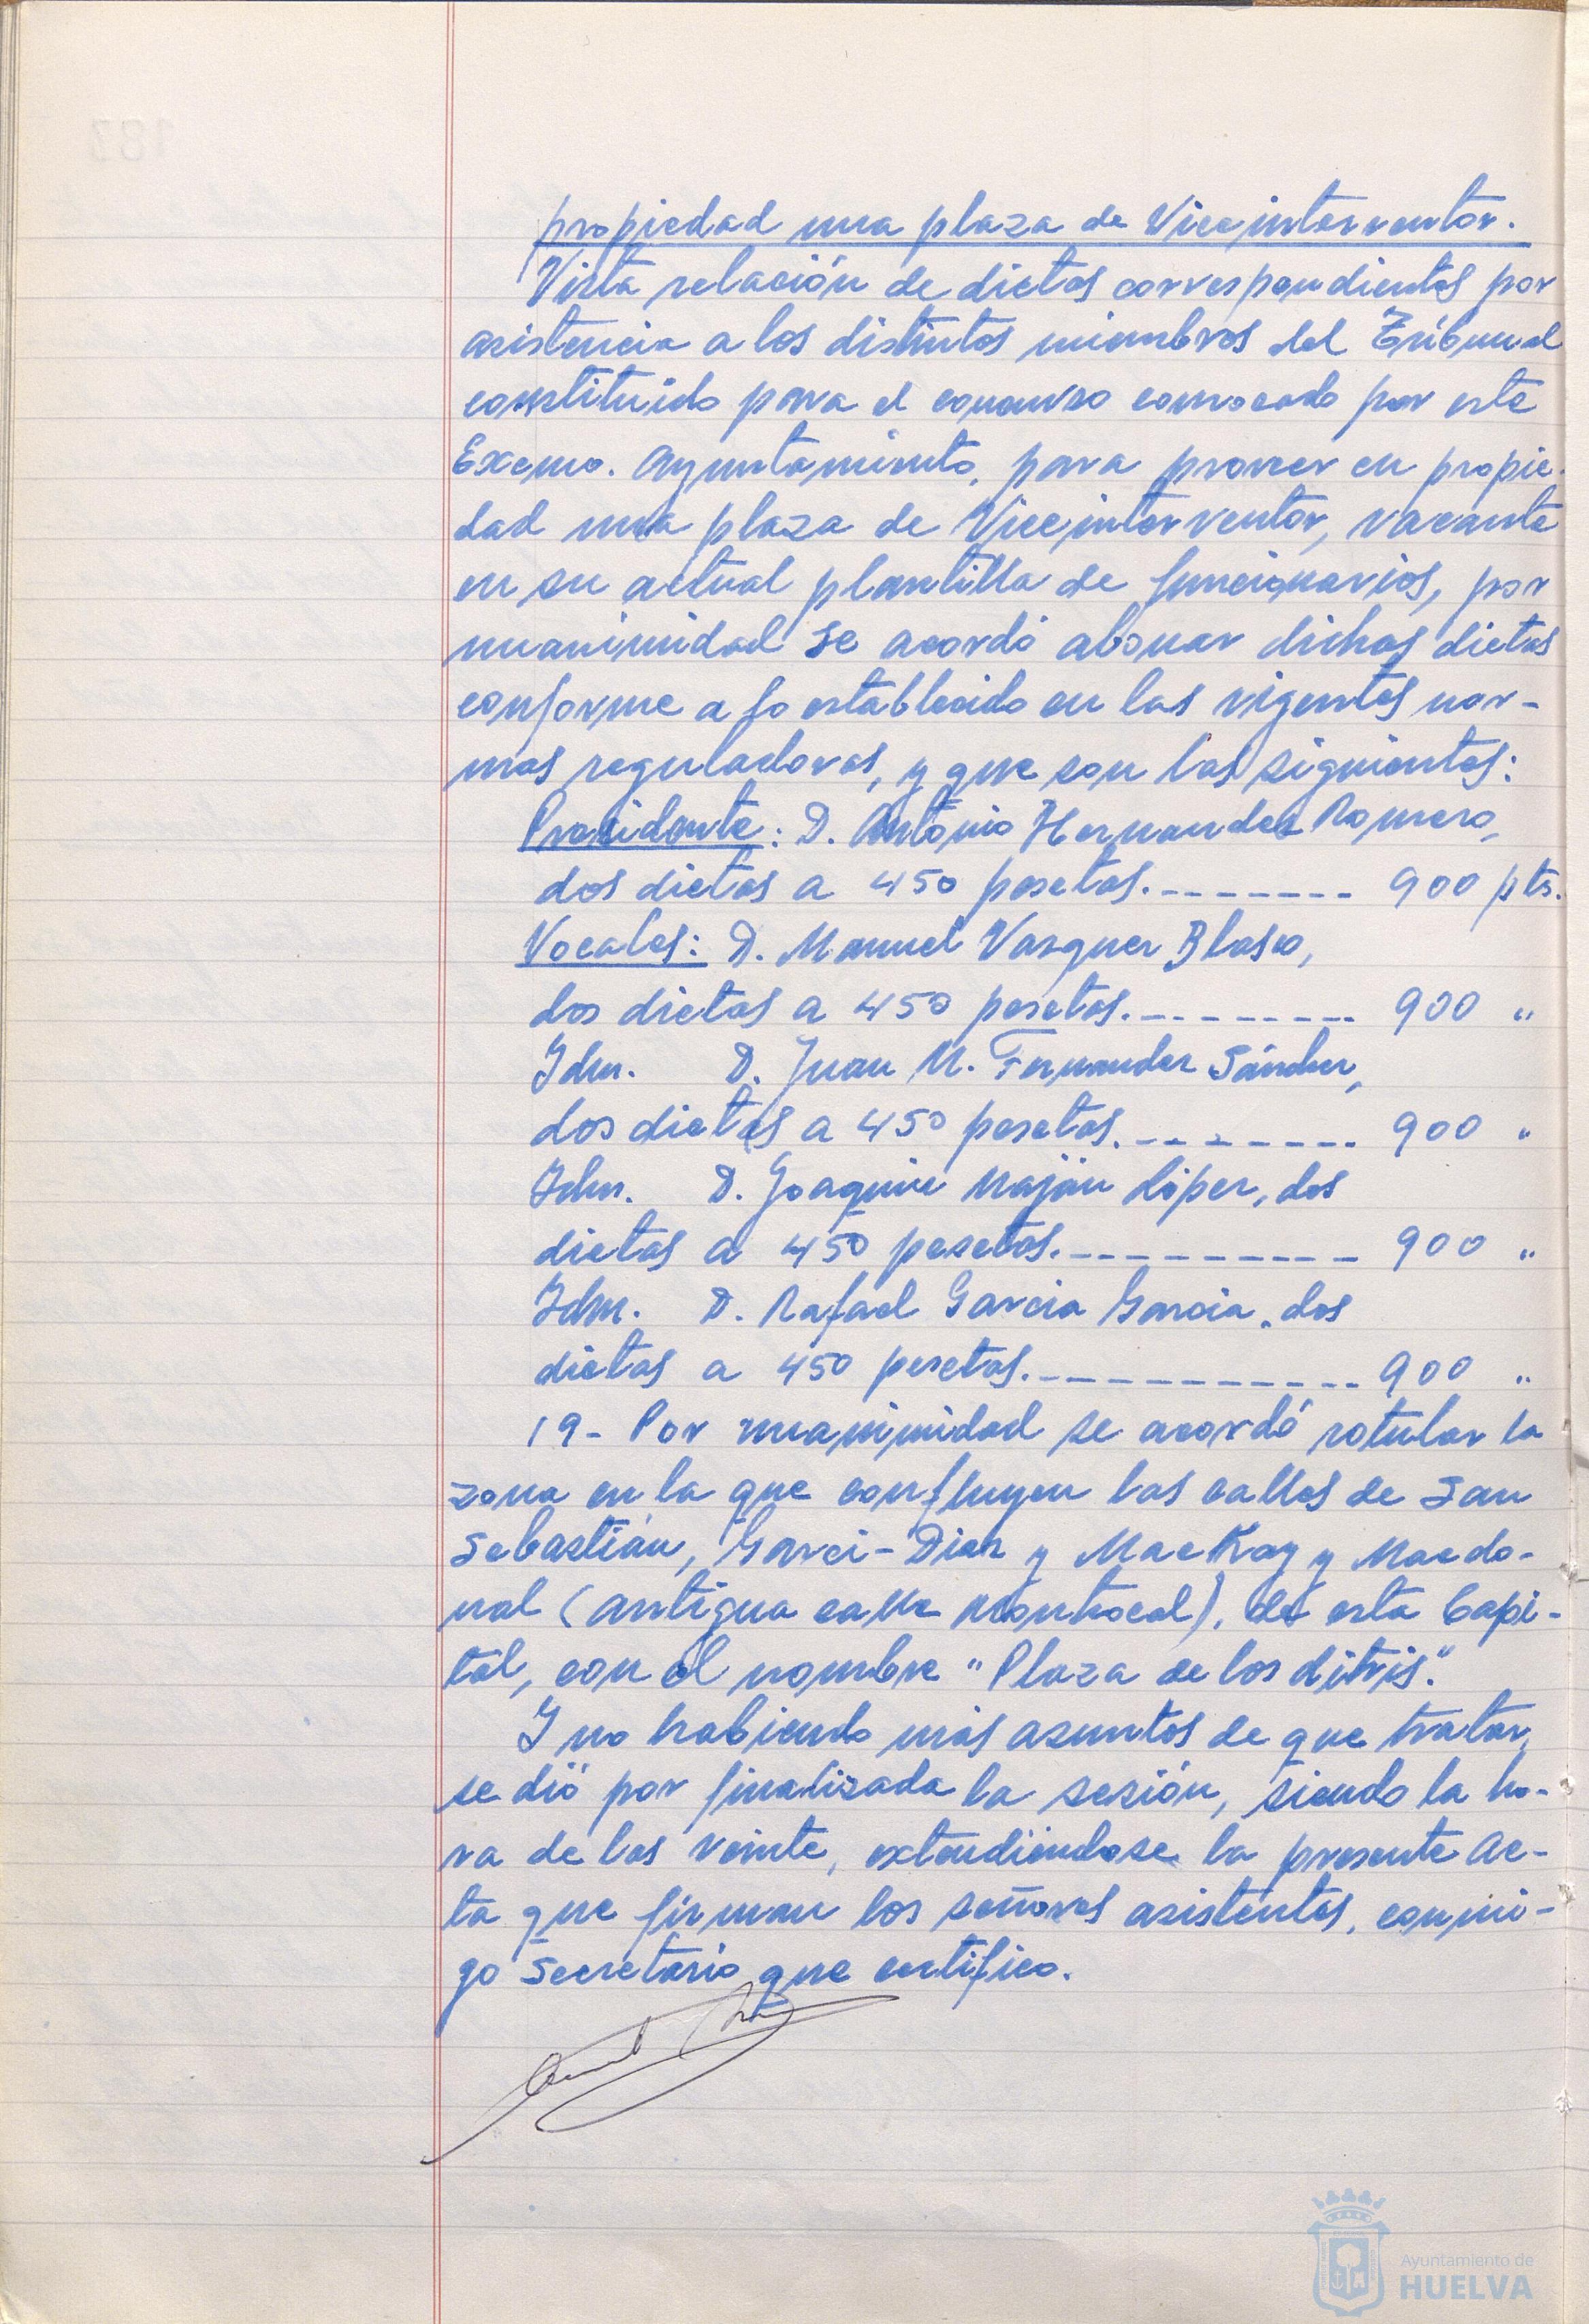 propiedad una plaza de Viceinterventor.
Vista relación de dietas correspondientes por
asistencia a los distintos miembros del Tribunal
constituido para el concurso convocado por este
Excmo. Ayuntamiento, para proveer en propie-
dad una plaza de Viceinterventor, vacante
en su actual plantilla de funcionarios, por
unanimidad se acordó abonar dichas dietas
conforme a lo establecido en las vigentes nor-
mas reguladoras, y que son las siguientes:
Presidente: D. Antonio Hernandez Romero,
dos dietas a 450 pesetas.------- 900 pts.
Vocales: D. Manuel Vazquez Blasco,
dos dietas a 450 pesetas.-------- 900 "
Idm. D. Juan M. Fernandez Sánchez,
dos dietas a 450 pesetas.-------- 900 "
Idm. D. Joaquin Naján López, dos
dietas a 450 pesetas.---------- 900 "
Idm. D. Rafael Garcia Garcia, dos
dietas a 450 pesetas.----------- 900 "
19- Por unanimidad se acordó rotular la
zona en la que confluyen las calles de San
Sebastián, Garci-Diaz y MacKay y Macdo-
nal (antigua calle Montrocal), de esta Capi-
tal, con el nombre "Plaza de los Litris".
Y no habiendo más asuntos de que tratar,
se dió por finalizada la sesión, siendo la ho-
ra de las veinte, extendiendose la presente Ac-
ta que firman los señores asistentes, conmi-
go Secretario que certifico.
Ayuntamiento de
HUELVA